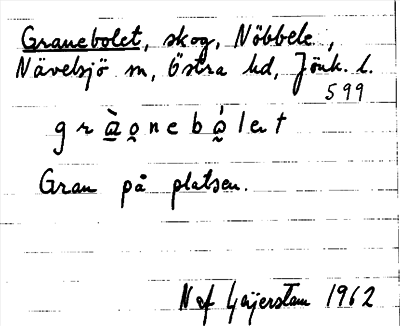 Granebolet, skog, Nöbbele,
Nävelsjö sn, Östra hd, Jönk. l.
599
Gran på platsen.
Naf Geijerstam 1962